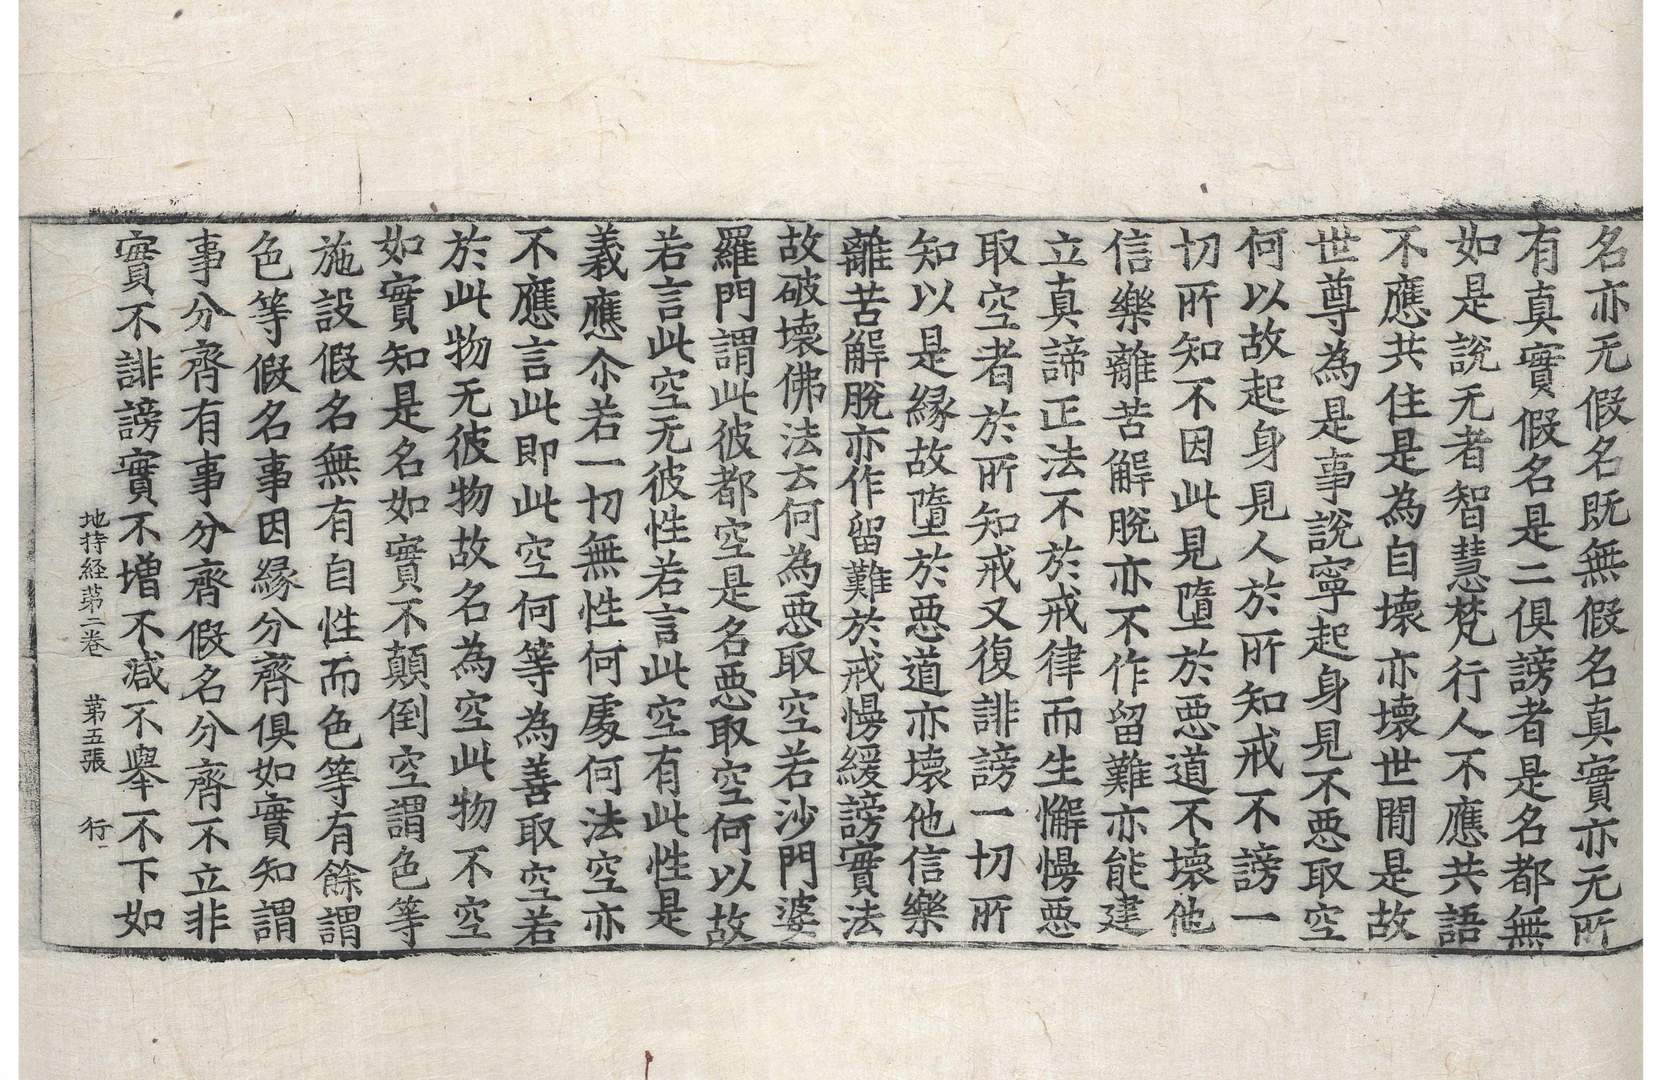 名亦无假名既無假名真實亦无所
有真實假名是二俱謗者是名都無
如是說无者智慧梵行人不應共語
不應共住是為自壞亦壞世間是故
世尊為是事說寧起身見不惡取空
何以故起身見人於所知戒不謗一
切所知不因此見墮於惡道不壞他
信樂離苦解脫亦不作留難亦能建
立真諦正法不於戒律而生懈慢惡
取空者於所知戒又復誹謗一切所
知以是緣故墮於惡道亦壞他信樂
離苦解脫亦作留難於戒慢緩謗實法
故破壞佛法云何為惡取空若沙門婆
羅門謂此彼都空是名惡取空何以故
若言此空无彼性若言此空有此性是
義應尒若一切無性何處何法空亦
不應言此即此空何等為善取空若
於此物无彼物故名為空此物不空
如實知是名如實不顛倒空謂色等
施設假名無有自性而色等有餘謂
色等假名事因緣分齊俱如實知謂
事分齊有事分齊假名分齊不立非
實不誹謗實不增不減不舉不下如
地持経苐二卷　第五張　行